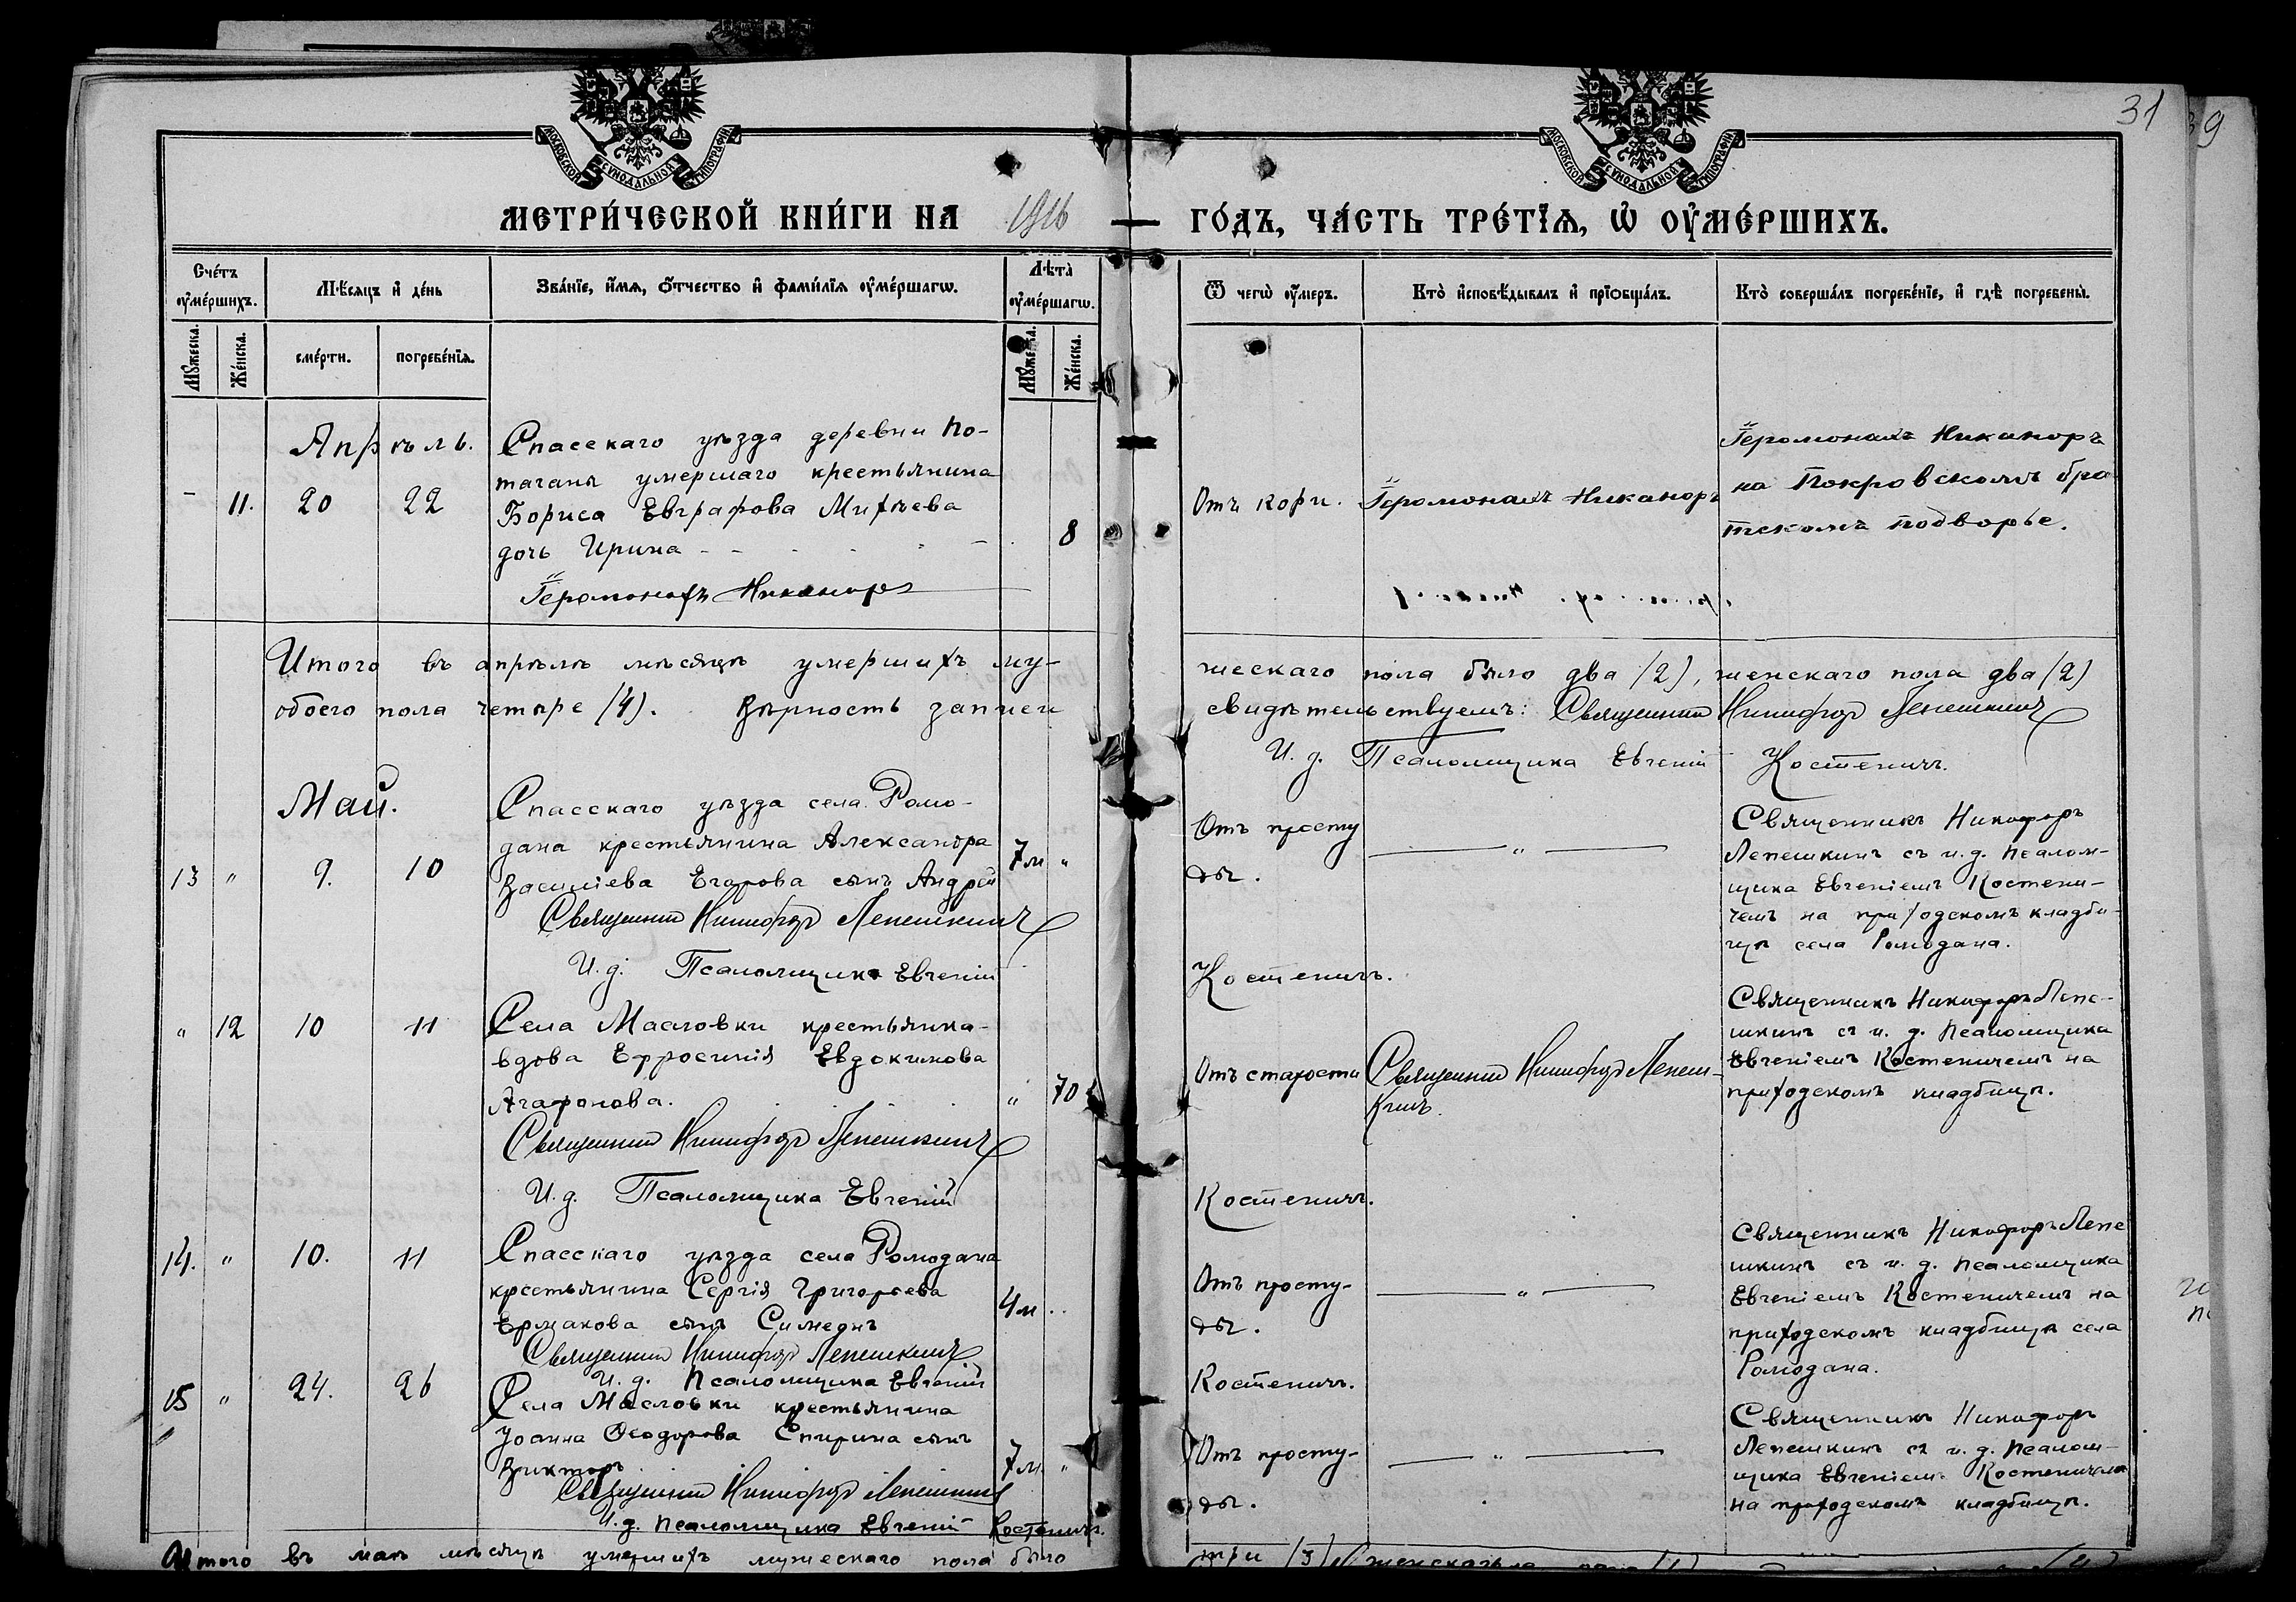 31
39
МОСКОВСКОЙ СѴНОДАЛЬНОЙ ТИПОГРАФІИ
МОСКОВСКОЙ СѴНОДАЛЬНОЙ ТИПОГРАФІИ
МЕТРИ́ЧЕСКОЙ КНИ́ГИ НА 1916 ГО́ДЪ, ЧА́СТЬ ТРЕ́ТІѦ, Ѡ҆ ОУ҆МЕ́РШИХЪ.
Сче́тъ оу҆ме́ршихъ.
Мꙋжеска.
Же́нска.
Мѣ́сѧцъ и҆ де́нь
сме́рти.
погребе́нїѧ.
Зва́нїе, и҆́мѧ, ѻ҆́тчество и҆ фами́лїѧ оу҆ме́ршагѡ.
Лѣ́та оу҆ме́ршагѡ.
Мꙋжеска.
Же́нска.
Ѿ чегѡ̀ оу҆́меръ.
Кто̀ и҆сповѣ́дывалъ и҆ прїѻбща́лъ.
Кто̀ соверша́лъ погребе́нїе, и҆ гдѣ̀ погребены̀.
Апрѣль.
– 11. 20 22
Спасскаго уѣзда деревни По-
тачаны умершаго крестьянина
Бориса Евграфова Михѣева
дочь Ирина
8
Іеромонахъ Никаноръ
Отъ кори.
Іеромонахъ Никаноръ
Іеромонахъ Никаноръ
на Покровскомъ бра
тскомъ подворье.
Итого въ апрѣлѣ мѣсяцѣ умершихъ му-
жескаго пола было два (2), женскаго пола два (2)
обоего пола четыре (4). Вѣрность записи
свидѣтельствуемъ: Священникъ Никифоръ Лепешкинъ
И. д. Псаломщика Евгеній Костеничъ.
Май.
13 " 9. 10
Спасскаго уѣзда села Ромо-
дана крестьянина Александра
Василіева Егорова сынъ Андрей
7 м "
Священникъ Никифоръ Лепешкинъ
И. д. Псаломщика Евгеній Костеничъ.
Отъ просту
ды.
"
Священникъ Никифоръ
Лепешкинъ съ и. д. псалом-
щика Евгеніемъ Костени-
чемъ на приходскомъ кладби-
щѣ села Ромодана.
" 12 10 11
Села Масловки крестьянка-
вдова Ефросинія Евдокимова
Агафонова.
" 70
Священникъ Никифоръ Лепешкинъ
И. д. Псаломщика Евгеній Костеничъ.
Отъ старости
Священникъ Никифоръ Лепеш-
кинъ.
Священникъ Никифоръ Лепе-
шкинъ съ и. д. псаломщика
Евгеніемъ Костеничемъ на
приходскомъ кладбищѣ.
14. " 10. 11
Спасскаго уѣзда села Ромодана
крестьянина Сергія Григорьева
Ермакова сынъ
4 м
Священникъ Никифоръ Лепешкинъ
И. д. Псаломщика Евгеній Костеничъ.
Отъ просту-
ды.
"
Священникъ Никифоръ Лепе
шкинъ съ и. д. псаломщика
Евгеніемъ Костеничемъ на
приходскомъ кладбищѣ села
Ромодана.
15 " 24. 26
Села Масловки крестьянина
Іоанна Ѳеодорова Спирина сынъ
Викторъ
7 м. "
Священникъ Никифоръ Лепешкинъ
И. д. псаломщика Евгеній Костеничъ.
Отъ просту-
ды.
"
Священникъ Никифоръ
Лепешкинъ съ и. д. псалом-
щика Евгеніемъ Костеничемъ
на приходскомъ кладбищѣ.
Итого въ маѣ мѣсяцѣ умершихъ мужескаго пола было
три (3)